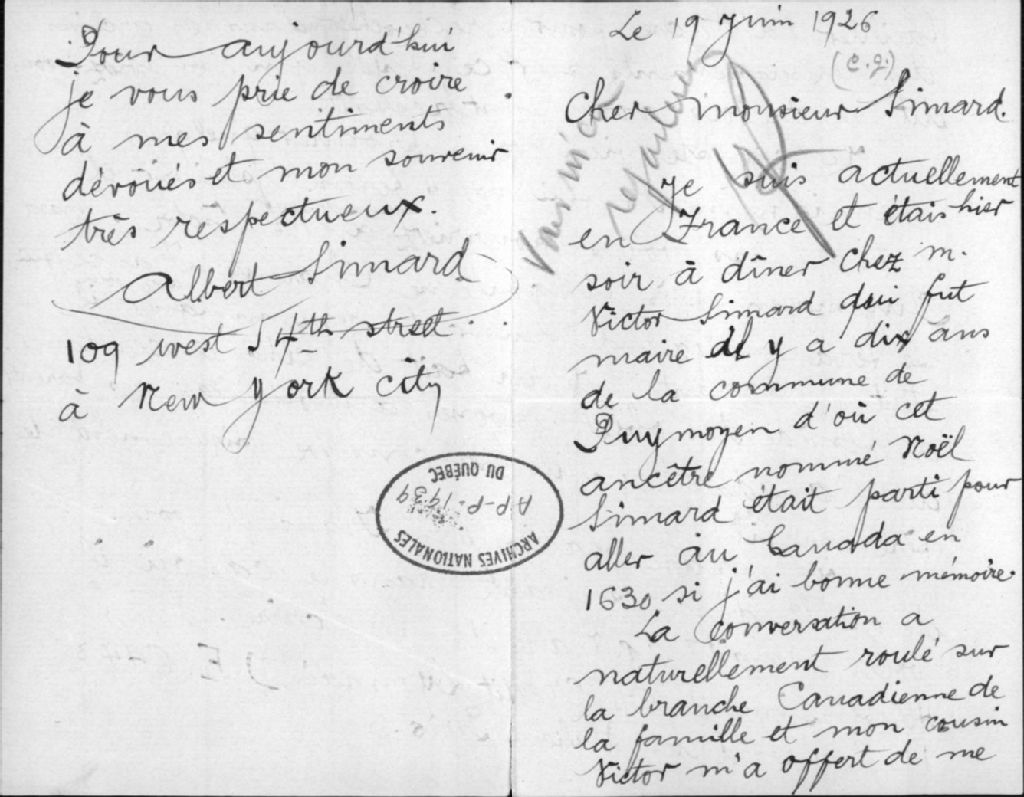 Pour aujourd'hui
je vous prie de croire
à mes sentiments
dévoués et mon souvenir
très respectueux.
Albert Simard
109 west 54th street
à New York city
ARCHIVES NATIONALES
DU QUÉBEC
A-P-P-1939
Le 19 Juin 1926
Cher monsieur Simard.
Je suis actuellement
en France et étais hier
soir à dîner chez m.
Victor Simard qui fut
maire il y a dix ans
de la commune de
Puymoyen d'où cet
ancêtre nommé Noël
Simard était parti pour
aller au Canada en
1630 si j'ai bonne mémoire.
La conversation a
naturellement roulé sur
la branche Canadienne de
la famille et mon cousin
Victor m'a offert de me